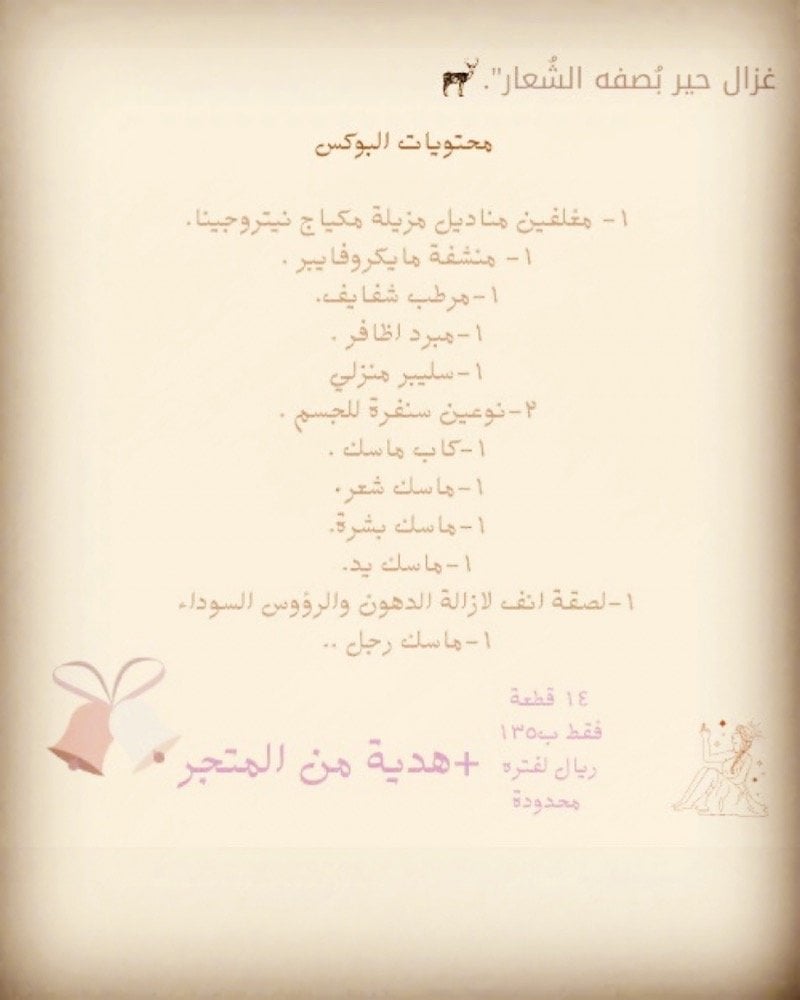 غزال حير بُصفه الشُعار".
محتويات البوكس
١- مغلفين مناديل مزيلة مكياج نيتروجينا.
١- منشفة مايكروفايبر .
١-مرطب شفايف.
١-مبرد اظافر .
١-سليبر منزلي
٢-نوعين سنفرة للجسم .
١-كاب ماسك .
١-ماسك شعر.
١-ماسك بشرة.
١-ماسك يد.
١-لصقة انف لازالة الدهون والرؤوس السوداء
١-ماسك رجل ..
١٤ قطعة
فقط ب١٣٥
ريال لفتره
محدودة
+هدية من المتجر